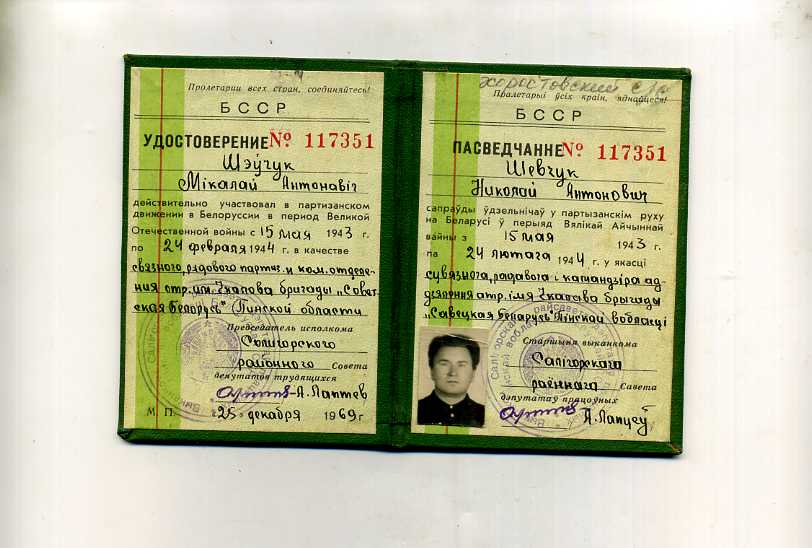 Пролетарии всех стран, соединяйтесь!
БССР
УДОСТОВЕРЕНИЕ № 117351
Шэўчук
Мікалай Антонавіч
действительно участвовал в партизанском
движении в Белоруссии в период Великой
Отечественной войны с 15 мая 1943 г.
по 24 февраля 1944 г. в качестве
связного, рядового партиз. и ком. отделе-
ния отр. им. Чкалова бригады „Совет-
ская Белорусь" Пинской области
Председатель исполкома
Солигорского
районного Совета
депутатов трудящихся
А. Лаптев
М. П. „25" декабря 1969 г.
Хоростовский с/с
Пралетарыі ўсіх краін, яднайцеся!
БССР
ПАСВЕДЧАННЕ № 117351
Шевчук
Николай Антонович
сапраўды ўдзельнічаў у партызанскім руху
на Беларусі ў перыяд Вялікай Айчыннай
вайны з 15 мая 1943 г.
па 24 лютага 1944 г. у якасці
сувязнога, радавога і камандзіра ад
дзялення атр. імя Чкалава брыгады
„Савецкая Беларусь" Пінскай вобласці
Старшыня выканкома
Салігорскага
раённага Савета
дэпутатаў працоўных
А. Лапцеў